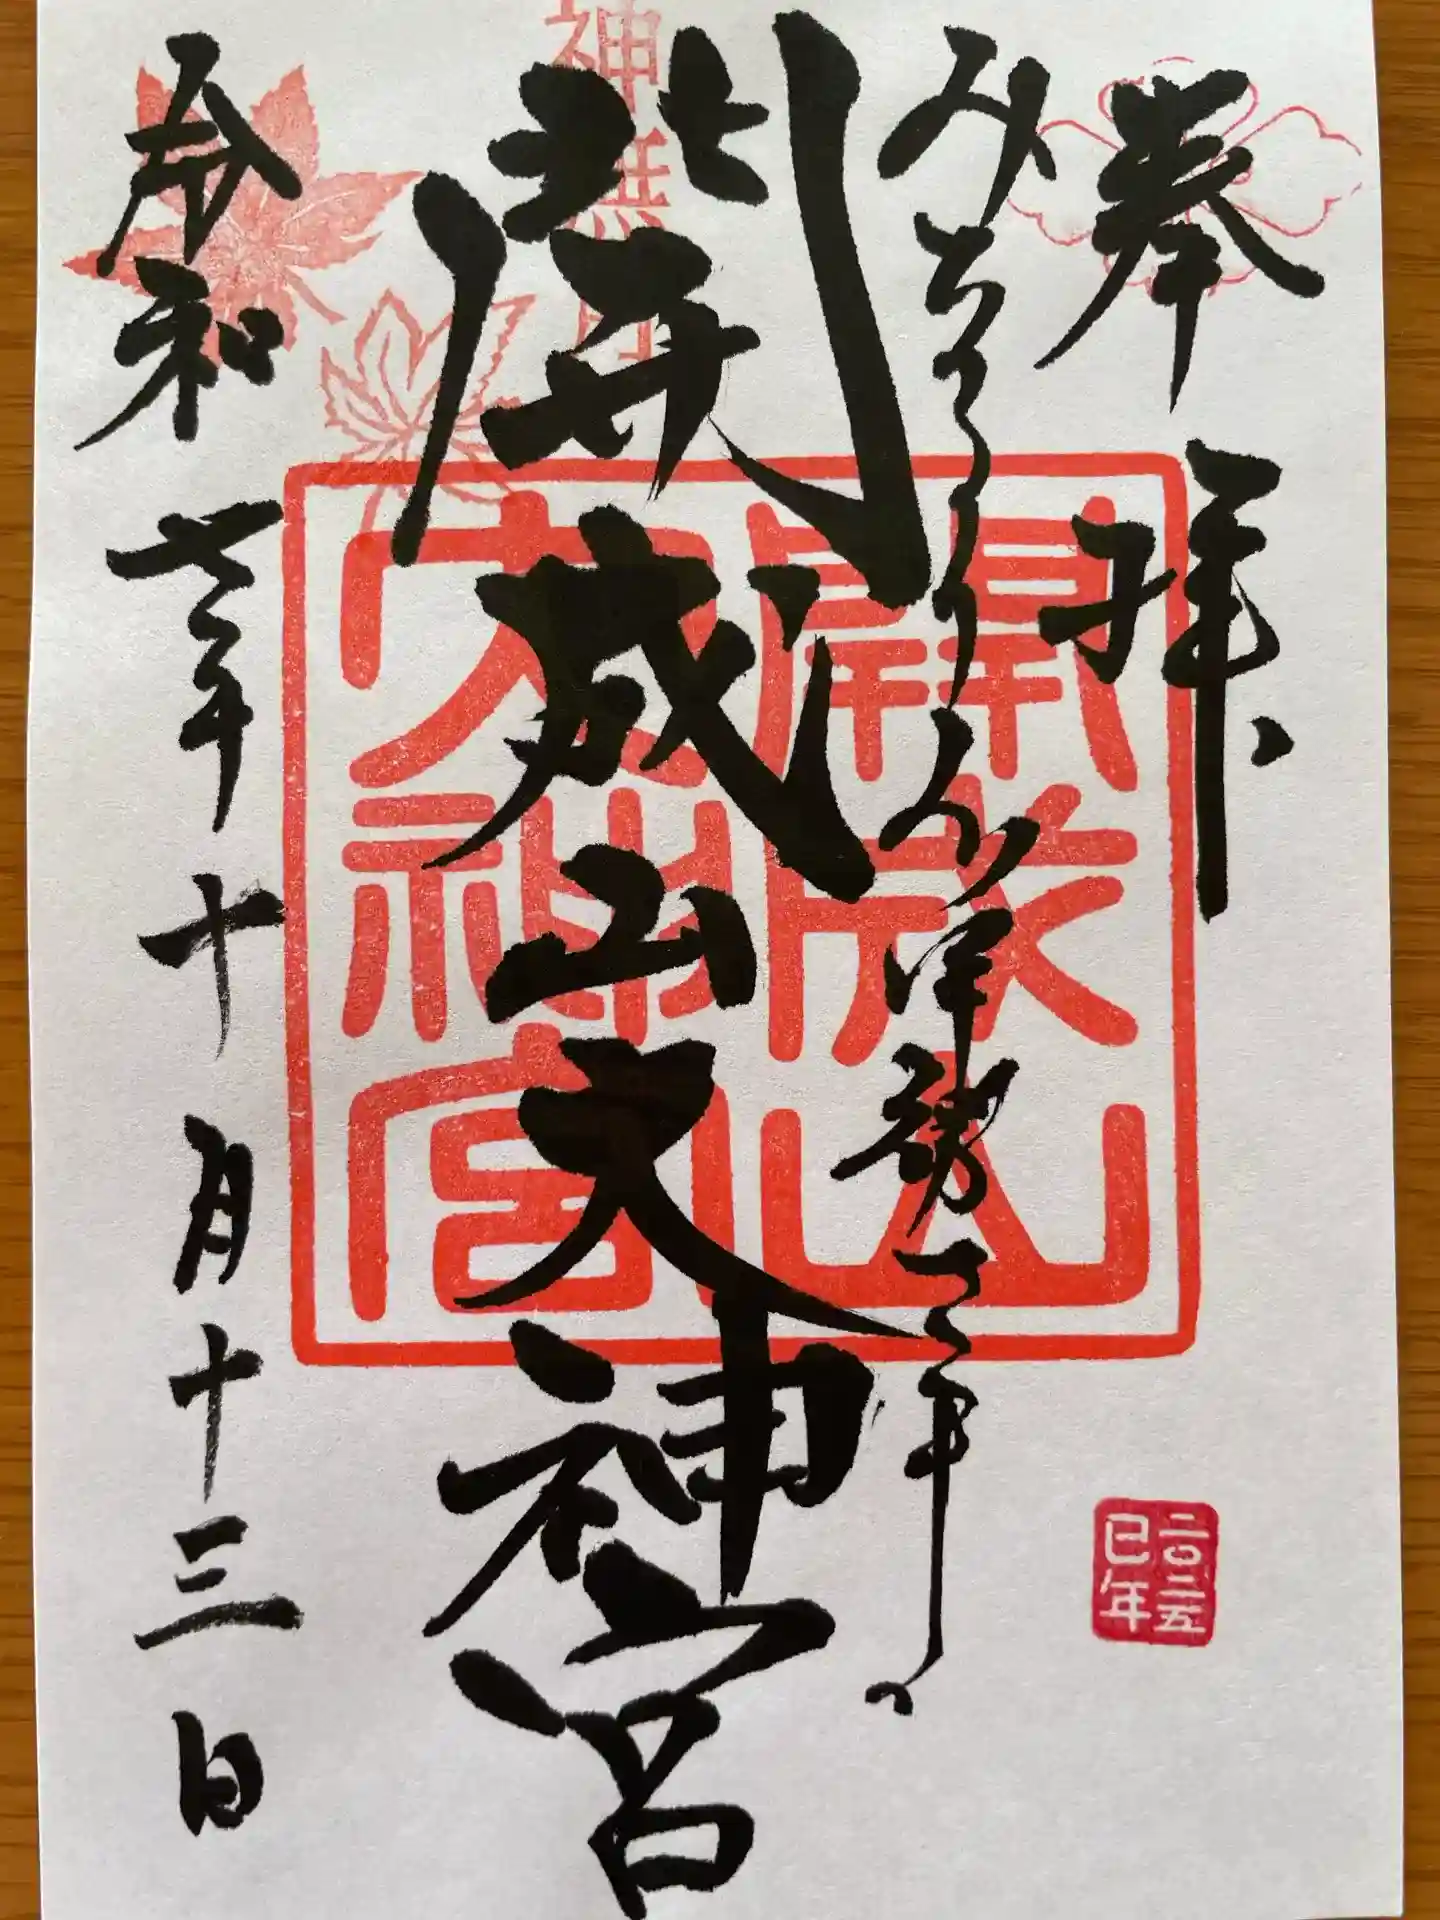 奉拝
みちのくのお伊勢さま
開成山大神宮
令和七年十月十三日
神無月
開成山
大神宮
二〇二五
巳年